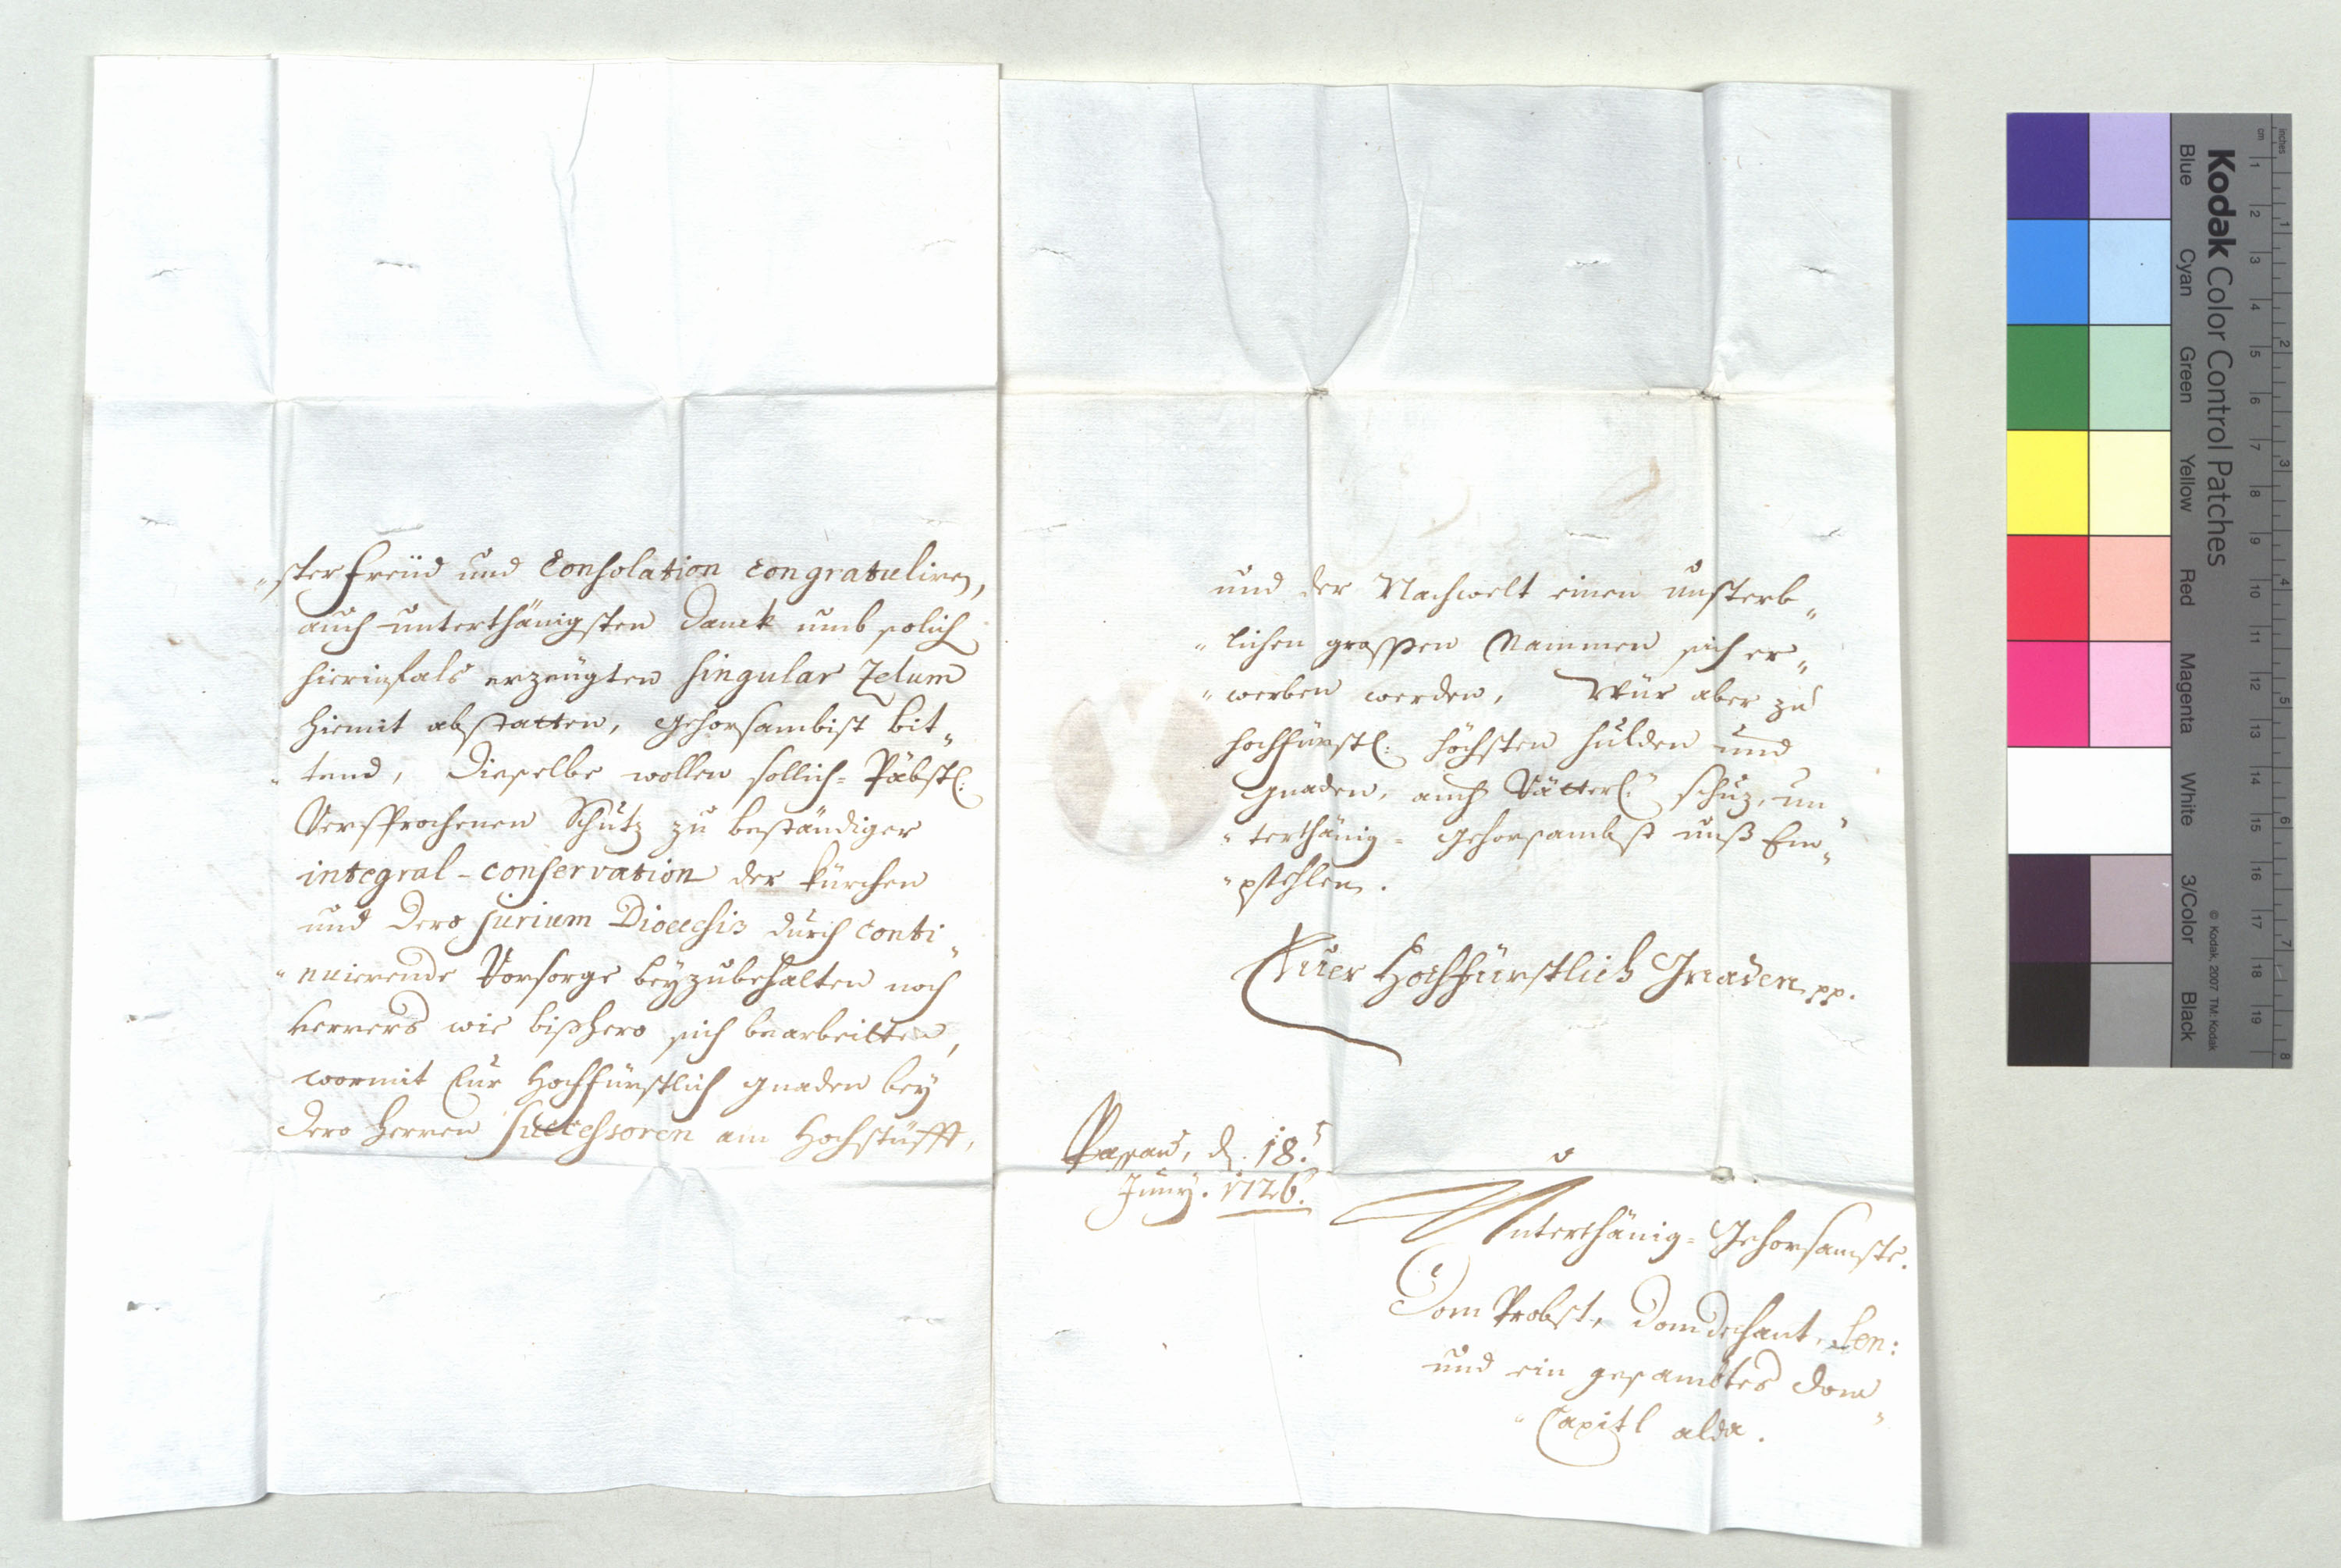 "ster freüd und Consolation congratuliren,
auch unterthänigsten Danck umb solich
hierinfals erzeügten singular Zelum
hiemit abstatten, gehorsambist bit„
"tend, Dieselbe wollen sollich= Päbstl:
Versprochenen Schutz zu beständiger
integral-conservation der kürchen
und dero jurium Dioecesis durch conti„
"nuierende Vorsorge beyzubehalten noch
ferrers wie bißhero sich bearbeitten,
wormit Eür Hochfürstlich gnaden bey
dero Herren Successoren am Hochstüfft,
und der Nachwelt einen unsterb„
"lichen grossen Nammen sich er„
"werben werden, Wür aber zu
hochfürstl: höchsten hulden und
gnaden, auch Vätterl: schuz, un„
"terthänig= gehorsambst unß Em„
"pfehlen.
Euer Hochfürstlich Gnaden pp.
Passau, d. 18.t
Juny. 1726.
Unterthänig= Gehorsamste.
Dom Probst, Domdechant, Sen:
und ein gesambtes Dom„
"Capitl alda.
Kodak Color Control Patches
Blue Cyan Green Yellow Red Magenta White 3/Color Black
© Kodak, 2007 TM: Kodak
cm 1 2 3 4 5 6 7 8 9 10 11 12 13 14 15 16 17 18 19
inches 1 2 3 4 5 6 7 8